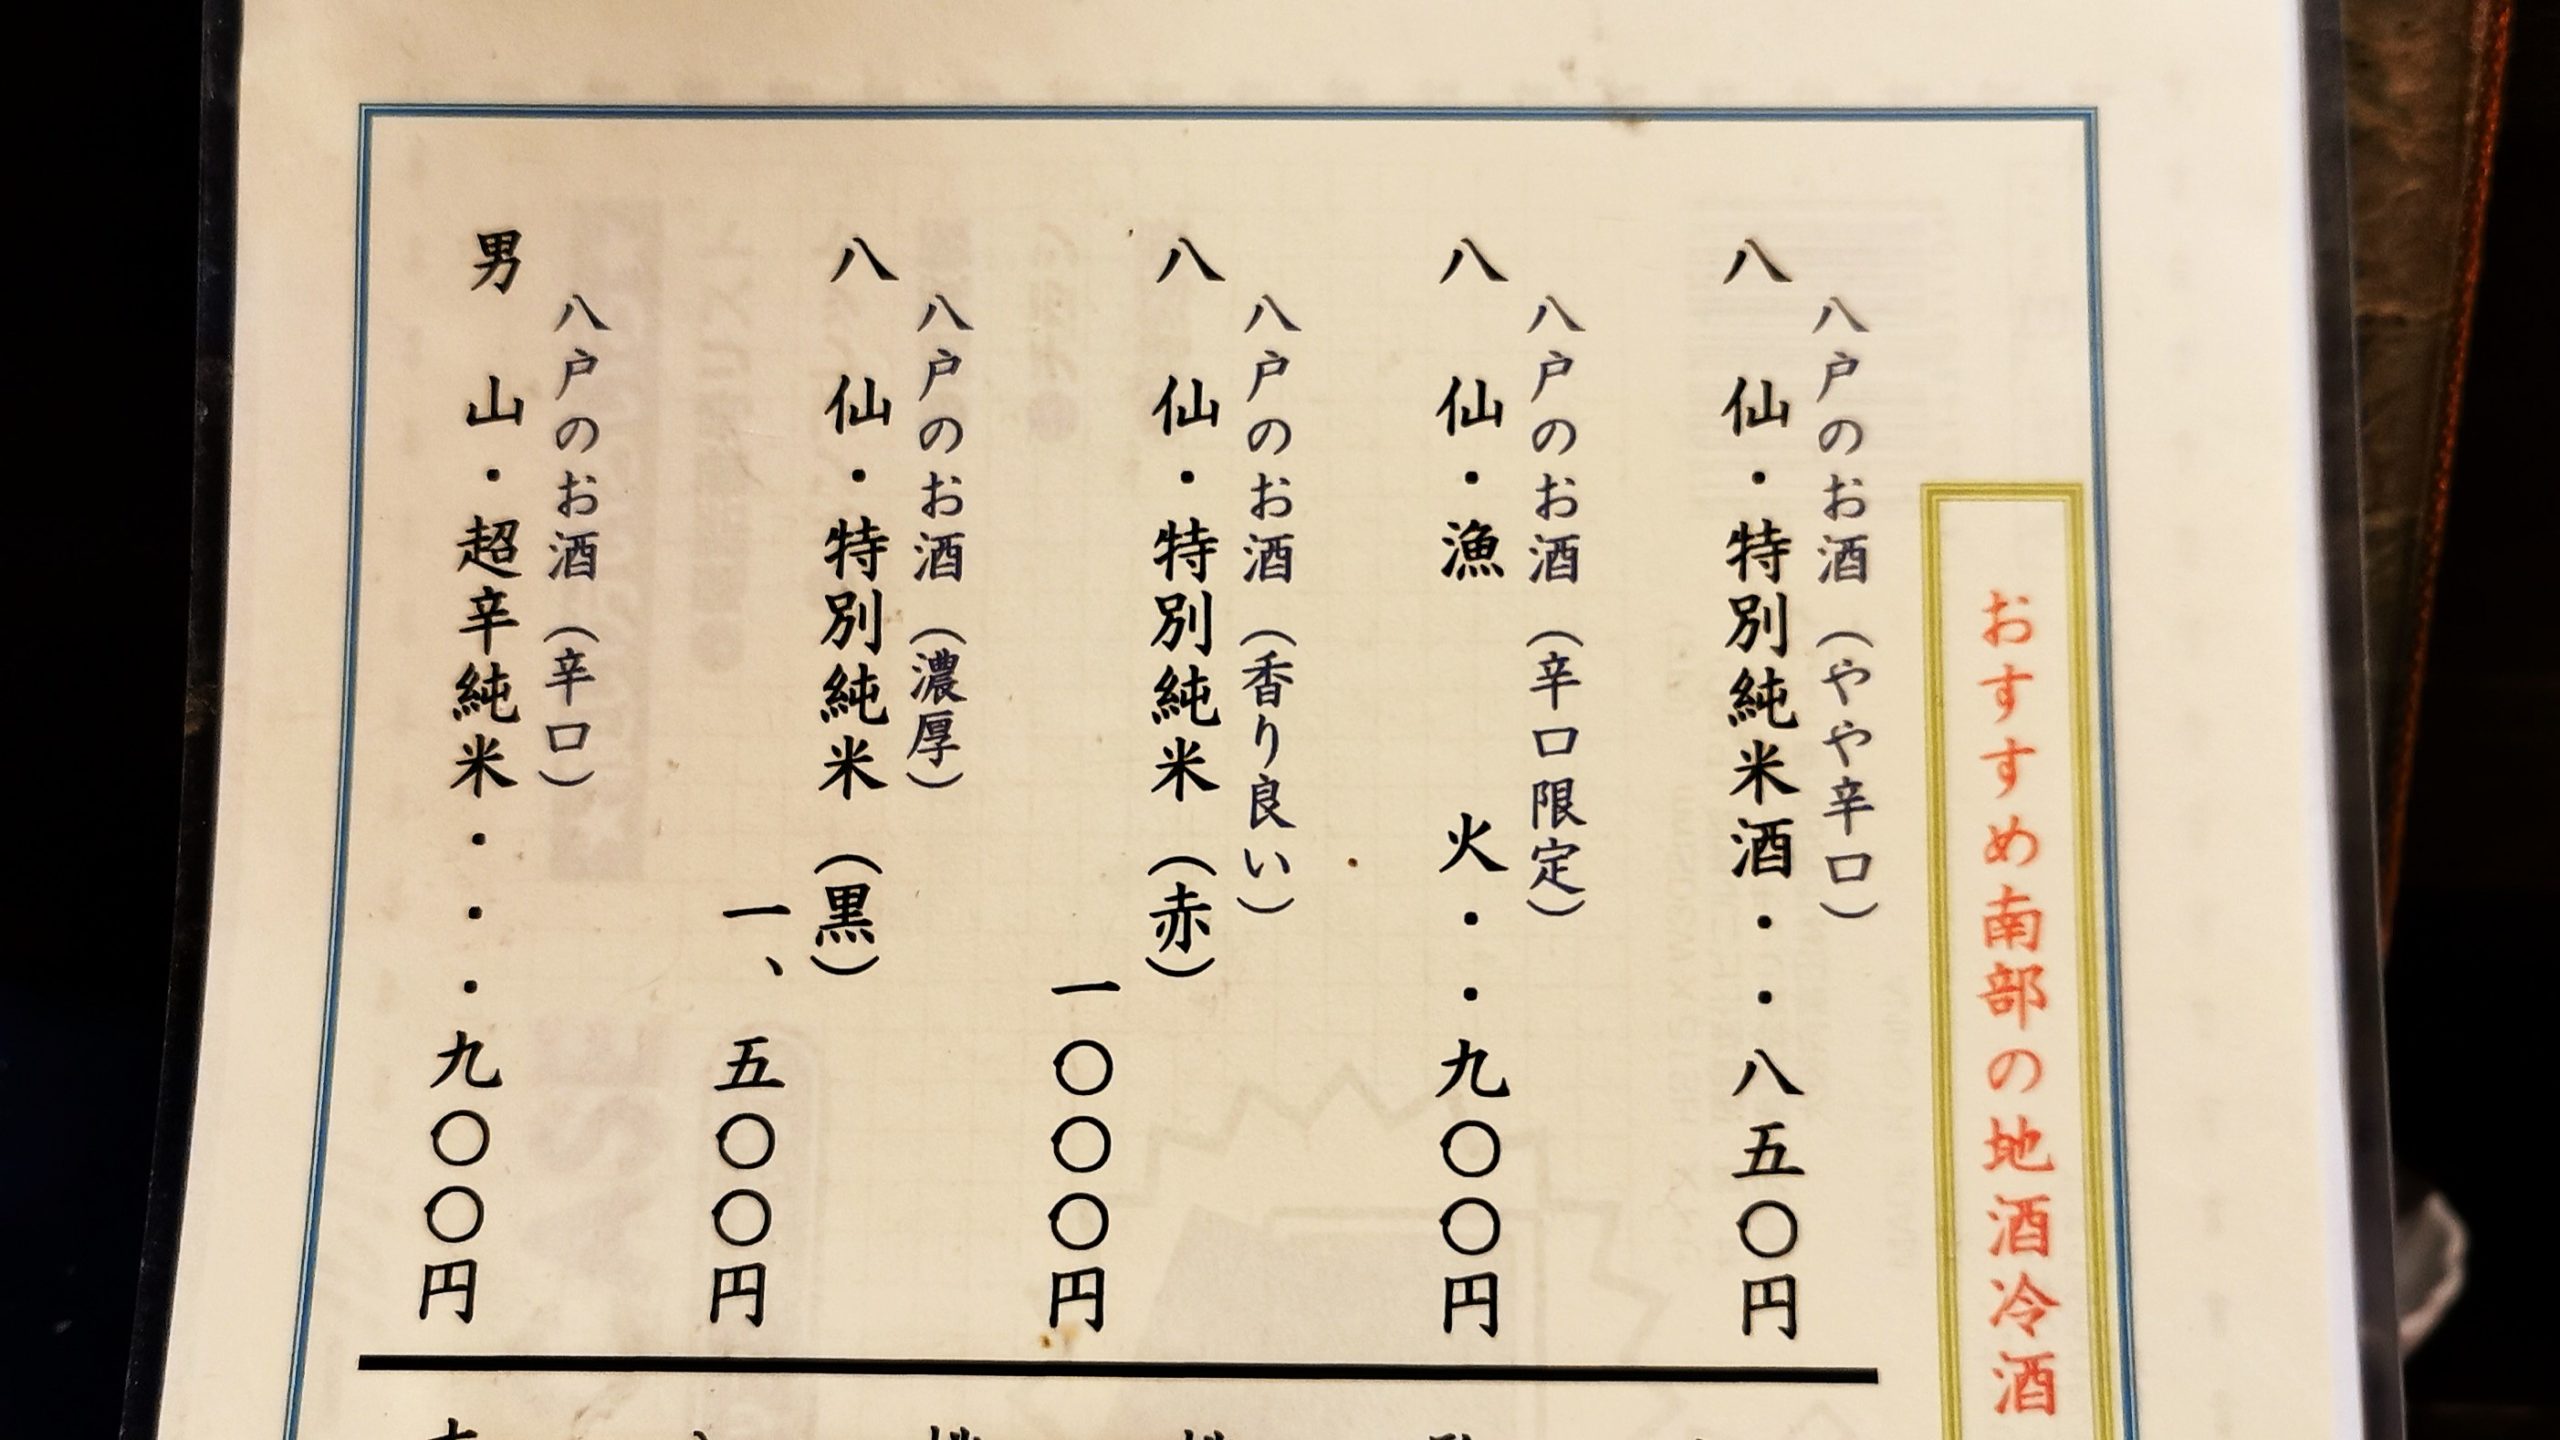 おすすめ南部の地酒冷酒
八戸のお酒（やや辛口）
八仙・特別純米酒・・八五〇円
八戸のお酒（辛口限定）
八仙・漁火・・九〇〇円
八戸のお酒（香り良い）
八仙・特別純米（赤）
一〇〇〇円
八戸のお酒（濃厚）
八仙・特別純米（黒）
一、五〇〇円
八戸のお酒（辛口）
男山・超辛純米・・・九〇〇円